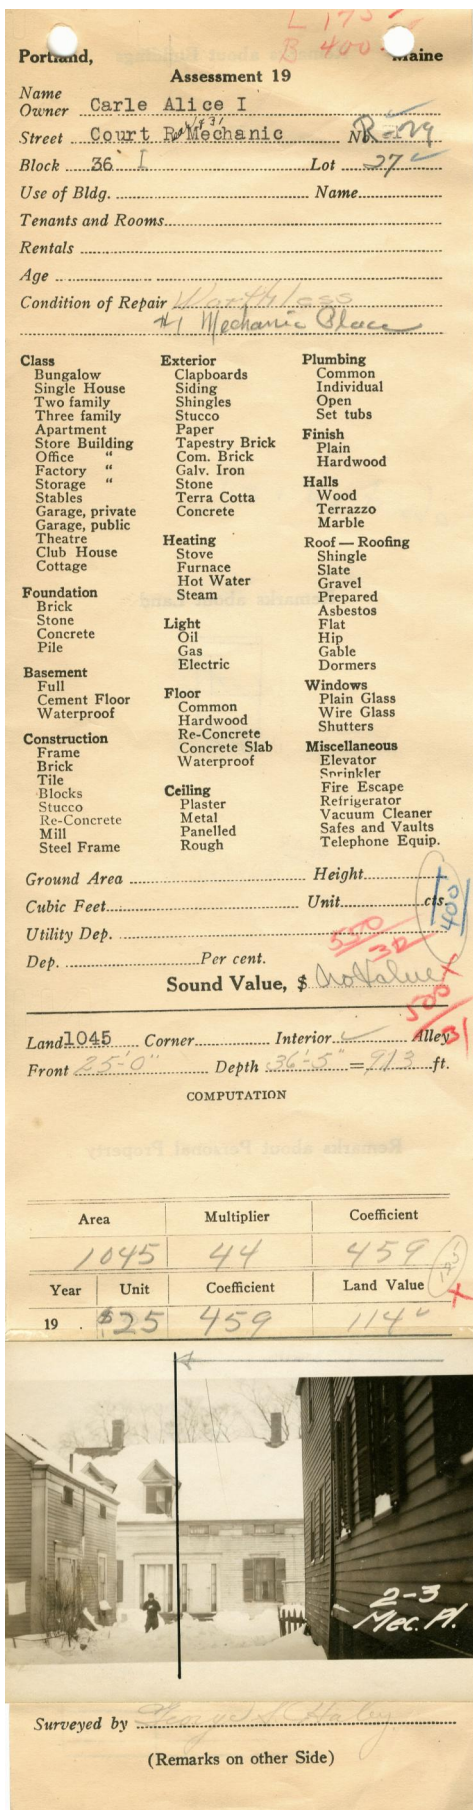 L 175
B 400
Portland, Maine
Assessment 19
Name
Owner Carle Alice I
Street Court R Mechanic No. R-179
Block 36 I Lot 27 ✓
Use of Bldg. Name
Tenants and Rooms
Rentals
Age
Condition of Repair Worthless
#1 Mechanic Place
Class
Bungalow
Single House
Two family
Three family
Apartment
Store Building
Office "
Factory "
Storage "
Stables
Garage, private
Garage, public
Theatre
Club House
Cottage
Foundation
Brick
Stone
Concrete
Pile
Basement
Full
Cement Floor
Waterproof
Construction
Frame
Brick
Tile
Blocks
Stucco
Re-Concrete
Mill
Steel Frame
Exterior
Clapboards
Siding
Shingles
Stucco
Paper
Tapestry Brick
Com. Brick
Galv. Iron
Stone
Terra Cotta
Concrete
Heating
Stove
Furnace
Hot Water
Steam
Light
Oil
Gas
Electric
Floor
Common
Hardwood
Re-Concrete
Concrete Slab
Waterproof
Ceiling
Plaster
Metal
Panelled
Rough
Plumbing
Common
Individual
Open
Set tubs
Finish
Plain
Hardwood
Halls
Wood
Terrazzo
Marble
Roof — Roofing
Shingle
Slate
Gravel
Prepared
Asbestos
Flat
Hip
Gable
Dormers
Windows
Plain Glass
Wire Glass
Shutters
Miscellaneous
Elevator
Sprinkler
Fire Escape
Refrigerator
Vacuum Cleaner
Safes and Vaults
Telephone Equip.
Ground Area Height
Cubic Feet Unit cts.
400
Utility Dep.
550/32
Dep. Per cent.
Sound Value, $ No Value X
500/31
Land 1045 Corner Interior ✓ Alley
Front 25'-0" Depth 36'-5" = 913 ft.
COMPUTATION
Area Multiplier Coefficient
1045 44 459
Year Unit Coefficient Land Value
X
19 $25 459 114 ✓
2-3
Mec. Pl.
Surveyed by George S. Haley
(Remarks on other Side)